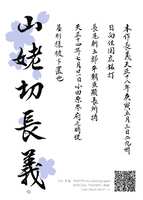 本作長義天正十八年庚寅五月三日ニ九州
日向住国広銘打
長尾新五郎平朝臣顕長所持
天正十四年七月廿一日小田原参府之時従
屋形様被下置也
山姥切長義